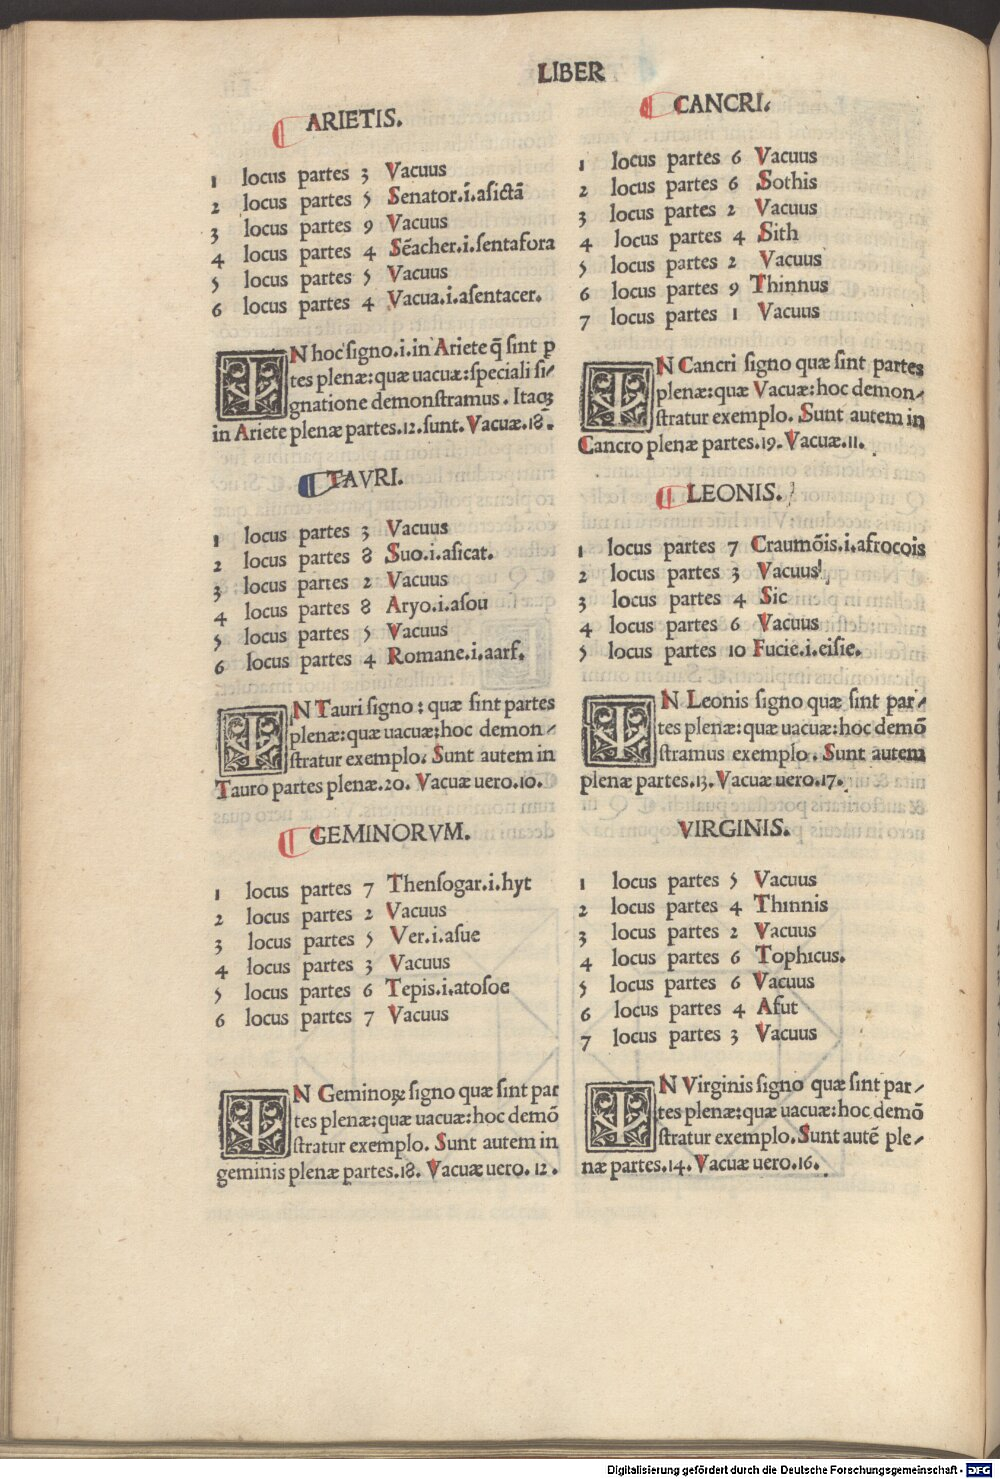 LIBER
ARIETIS.
1 locus partes 3 Vacuus
2 locus partes 5 Senator.i.asictā
3 locus partes 9 Vacuus
4 locus partes 4 Sēacher.i.sentafora
5 locus partes 5 Vacuus
6 locus partes 4 Vacua.i.asentacer.
IN hoc signo.i.in Ariete q̄ sint p
tes plenæ:quæ uacuæ:speciali si-
gnatione demonstramus. Itaqꝫ
in Ariete plenæ partes.12.sunt. Vacuæ.18.
TAVRI.
1 locus partes 3 Vacuus
2 locus partes 8 Suo.i.asicat.
3 locus partes 2 Vacuus
4 locus partes 8 Aryo.i.asou
5 locus partes 5 Vacuus
6 locus partes 4 Romane.i.aarf.
IN Tauri signo: quæ sint partes
plenæ:quæ uacuæ:hoc demon-
stratur exemplo. Sunt autem in
Tauro partes plenæ.20. Vacuæ uero.10.
GEMINORVM.
1 locus partes 7 Thensogar.i.hyt
2 locus partes 2 Vacuus
3 locus partes 5 Ver.i.asue
4 locus partes 3 Vacuus
5 locus partes 6 Tepis.i.atosoe
6 locus partes 7 Vacuus
IN Geminoꝝ signo quæ sint par
tes plenæ:quæ uacuæ:hoc demō
stratur exemplo. Sunt autem in
geminis plenæ partes.18. Vacuæ uero. 12.
CANCRI.
1 locus partes 6 Vacuus
2 locus partes 6 Sothis
3 locus partes 2 Vacuus
4 locus partes 4 Sith
5 locus partes 2 Vacuus
6 locus partes 9 Thinnus
7 locus partes 1 Vacuus
IN Cancri signo quæ sint partes
plenæ:quæ Vacuæ:hoc demon-
stratur exemplo. Sunt autem in
Cancro plenæ partes.19. Vacuæ.11.
LEONIS.
1 locus partes 7 Craumōis.i.afrocois
2 locus partes 3 Vacuus
3 locus partes 4 Sic
4 locus partes 6 Vacuus
5 locus partes 10 Fucie.i.eisie.
IN Leonis signo quæ sint par-
tes plenæ:quæ uacuæ:hoc demō
stramus exemplo. Sunt autem
plenæ partes.13. Vacuæ uero.17.
VIRGINIS.
1 locus partes 5 Vacuus
2 locus partes 4 Thinnis
3 locus partes 2 Vacuus
4 locus partes 6 Tophicus.
5 locus partes 6 Vacuus
6 locus partes 4 Afut
7 locus partes 3 Vacuus
IN Virginis signo quæ sint par-
tes plenæ:quæ uacuæ:hoc demō
stratur exemplo. Sunt autē ple-
næ partes.14. Vacuæ uero.16.
Digitalisierung gefördert durch die Deutsche Forschungsgemeinschaft - DFG